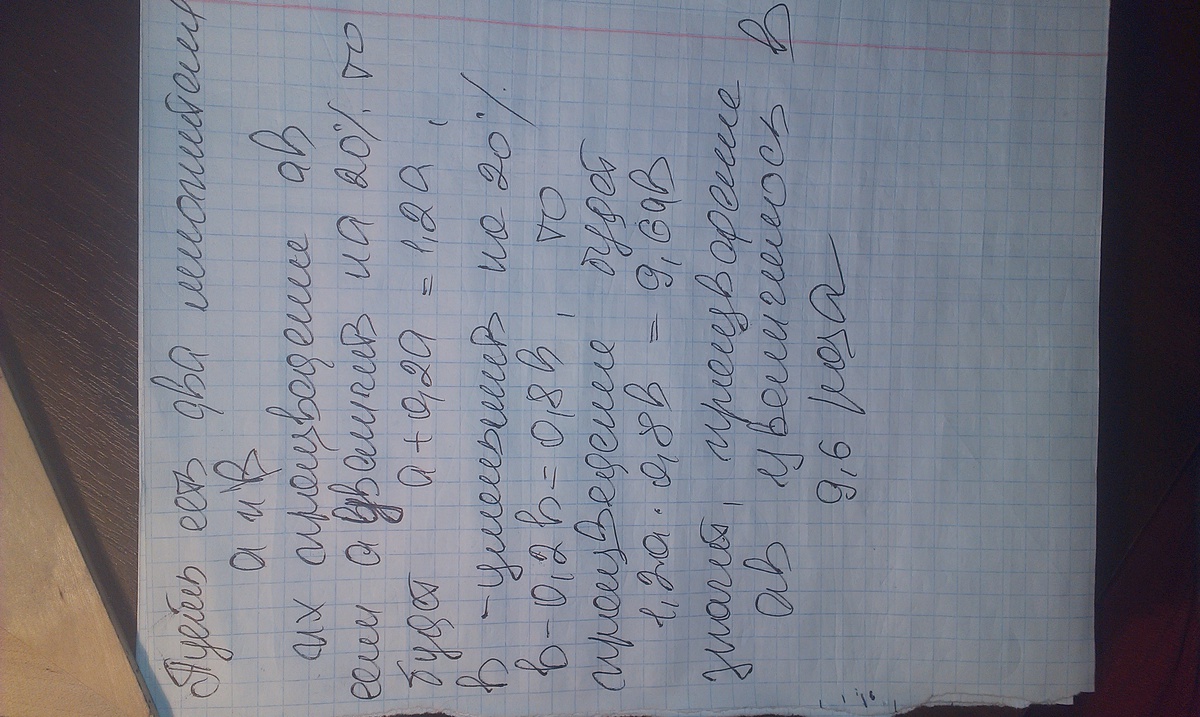 Пусть есть два множителя
а и в
их произведение ав
если а увеличить на 20% то
будет а+0,2а = 1,2а,
в - уменьшить на 20%
в-0,2в=0,8в, то
произведение будет
1,2а·0,8в = 9,6ав
значит, произведение
ав увеличилось в
9,6 раза